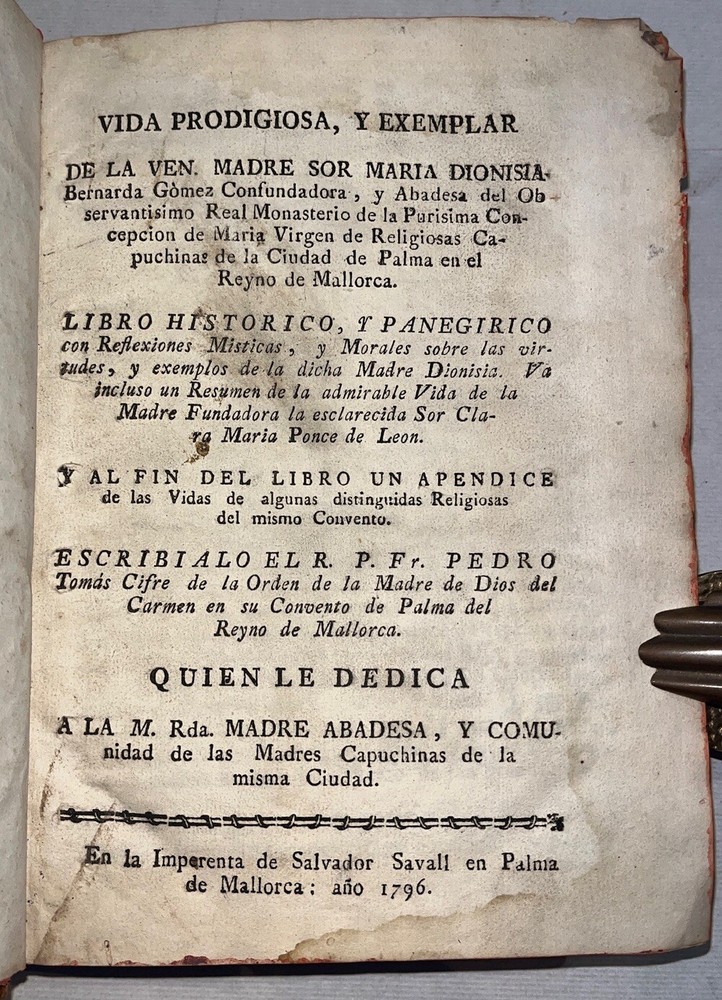 VIDA PRODIGIOSA, Y EXEMPLAR
DE LA VEN. MADRE SOR MARIA DIONISIA
Bernarda Gòmez Confundadora, y Abadesa del Ob
servantisimo Real Monasterio de la Purisima Con-
cepcion de Maria Virgen de Religiosas Ca-
puchinas de la Ciudad de Palma en el
Reyno de Mallorca.
LIBRO HISTORICO, Y PANEGIRICO
con Reflexiones Misticas, y Morales sobre las vir-
tudes, y exemplos de la dicha Madre Dionisia. Va
incluso un Resumen de la admirable Vida de la
Madre Fundadora la esclarecida Sor Cla-
ra Maria Ponce de Leon.
Y AL FIN DEL LIBRO UN APENDICE
de las Vidas de algunas distinguidas Religiosas
del mismo Convento.
ESCRIBIALO EL R. P. Fr. PEDRO
Tomás Cifre de la Orden de la Madre de Dios del
Carmen en su Convento de Palma del
Reyno de Mallorca.
QUIEN LE DEDICA
A LA M. Rda. MADRE ABADESA, Y COMU-
nidad de las Madres Capuchinas de la
misma Ciudad.
En la Imprenta de Salvador Savall en Palma
de Mallorca: año 1796.